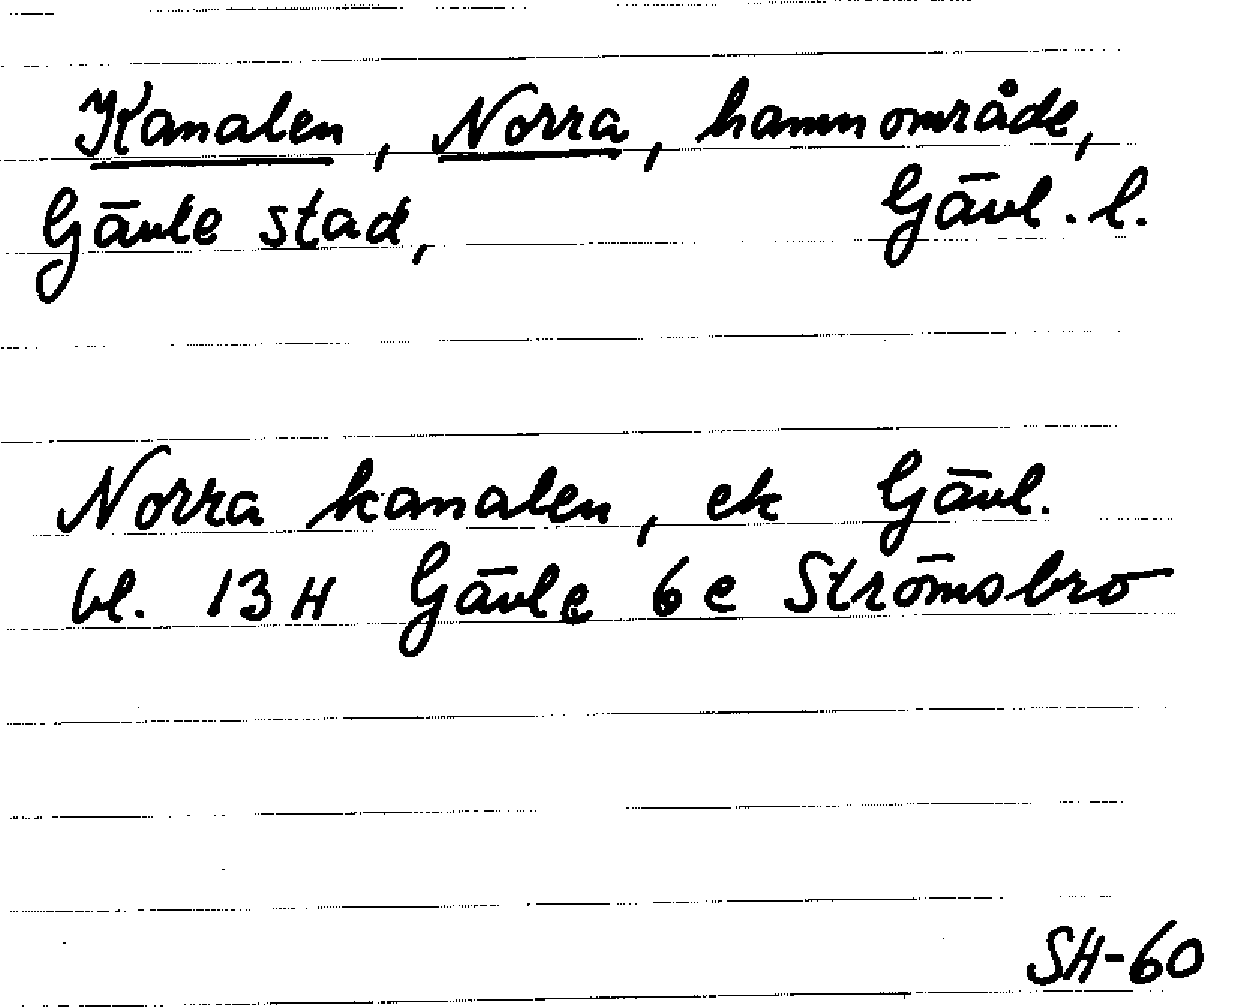 Kanalen, Norra, hamnområde,
Gävle stad, Gävl. l.
Norra kanalen, ek Gävl.
bl. 13 H Gävle 6 c Strömsbro
SH-60